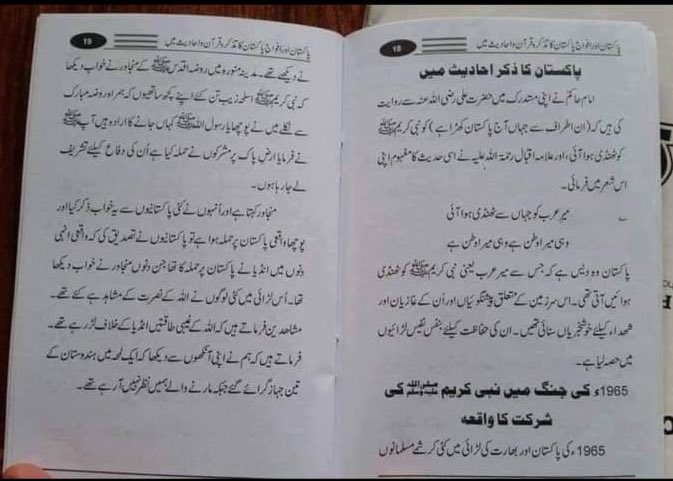 پاکستان اور افواج پاکستان کا تذکرہ قرآن واحادیث میں
18
پاکستان کا ذکر احادیث میں
امام حاکمؒ نے اپنی مستدرک میں حضرت علی رضی اللہ عنہ سے روایت
کی ہیں کہ (ان اطراف سے جہاں آج پاکستان کھڑا ہے) کو نبی کریم ﷺ
کو ٹھنڈی ہوا آئی، اور علامہ اقبال رحمۃ اللہ علیہ نے اسی حدیث کا مفہوم اپنی
اس شعر میں فرمائی۔
میرِ عرب کو جہاں سے ٹھنڈی ہوا آئی
وہی میرا وطن ہے وہی میرا وطن ہے
پاکستان وہ دیس ہے کہ جس سے میر عرب یعنی نبی کریم ﷺ کو ٹھنڈی
ہوائیں آتی تھی۔ اس سرزمین کے متعلق پیشنگوئیاں اور اُن کے غازیان اور
شھداء کیلئے خوشخبریاں سنائی تھیں۔ ان کی حفاظت کیلئے بنفس نفیس لڑائیوں
میں حصہ لیا ہے۔
1965ء کی جنگ میں نبی کریم ﷺ کی
شرکت کا واقعہ
1965ء کی پاکستان اور بھارت کی لڑائی میں کئی کرشمے مسلمانوں
پاکستان اور افواج پاکستان کا تذکرہ قرآن واحادیث میں
19
نے دیکھے تھے۔ مدینہ منورہ میں روضہ اقدس ﷺ کے مجاور نے خواب دیکھا
کہ نبی کریم ﷺ اسلحہ زیب تن کئے اپنے کچھ ساتھیوں کے ہمراہ روضہ مبارک
سے نکلے میں نے پوچھا یا رسول اللہ ﷺ کہاں جانے کا ارادہ ہیں آپ ﷺ
نے فرمایا ارضِ پاک پر مشرکوں نے حملہ کیا ہے اُن کی دفاع کیلئے تشریف
لے جا رہا ہوں۔
مجاور کہتا ہے اور اُنہوں نے کئی پاکستانیوں سے یہ خواب ذکر کیا اور
پوچھا واقعی پاکستان پر حملہ ہوا ہے تو پاکستانیوں نے تصدیق کی کہ واقعی انہی
دنوں میں انڈیا نے پاکستان پر حملہ کا تھا جن دنوں مجاور نے خواب دیکھا
تھا۔ اُس لڑائی میں کئی لوگوں نے اللہ کے نصرت کے مشاہد ہے کئے تھے۔
مشاہدین فرماتے ہیں کہ اللہ کے غیبی طاقتیں انڈیا کے خلاف لڑ رہے تھے۔
فرماتے ہیں کہ ہم نے اپنی آنکھوں سے دیکھا کہ ایک لمحہ میں ہندوستان کے
تین جہاز گرائے گئے جبکہ مارنے والے ہمیں نظر نہیں آ رہے تھے۔